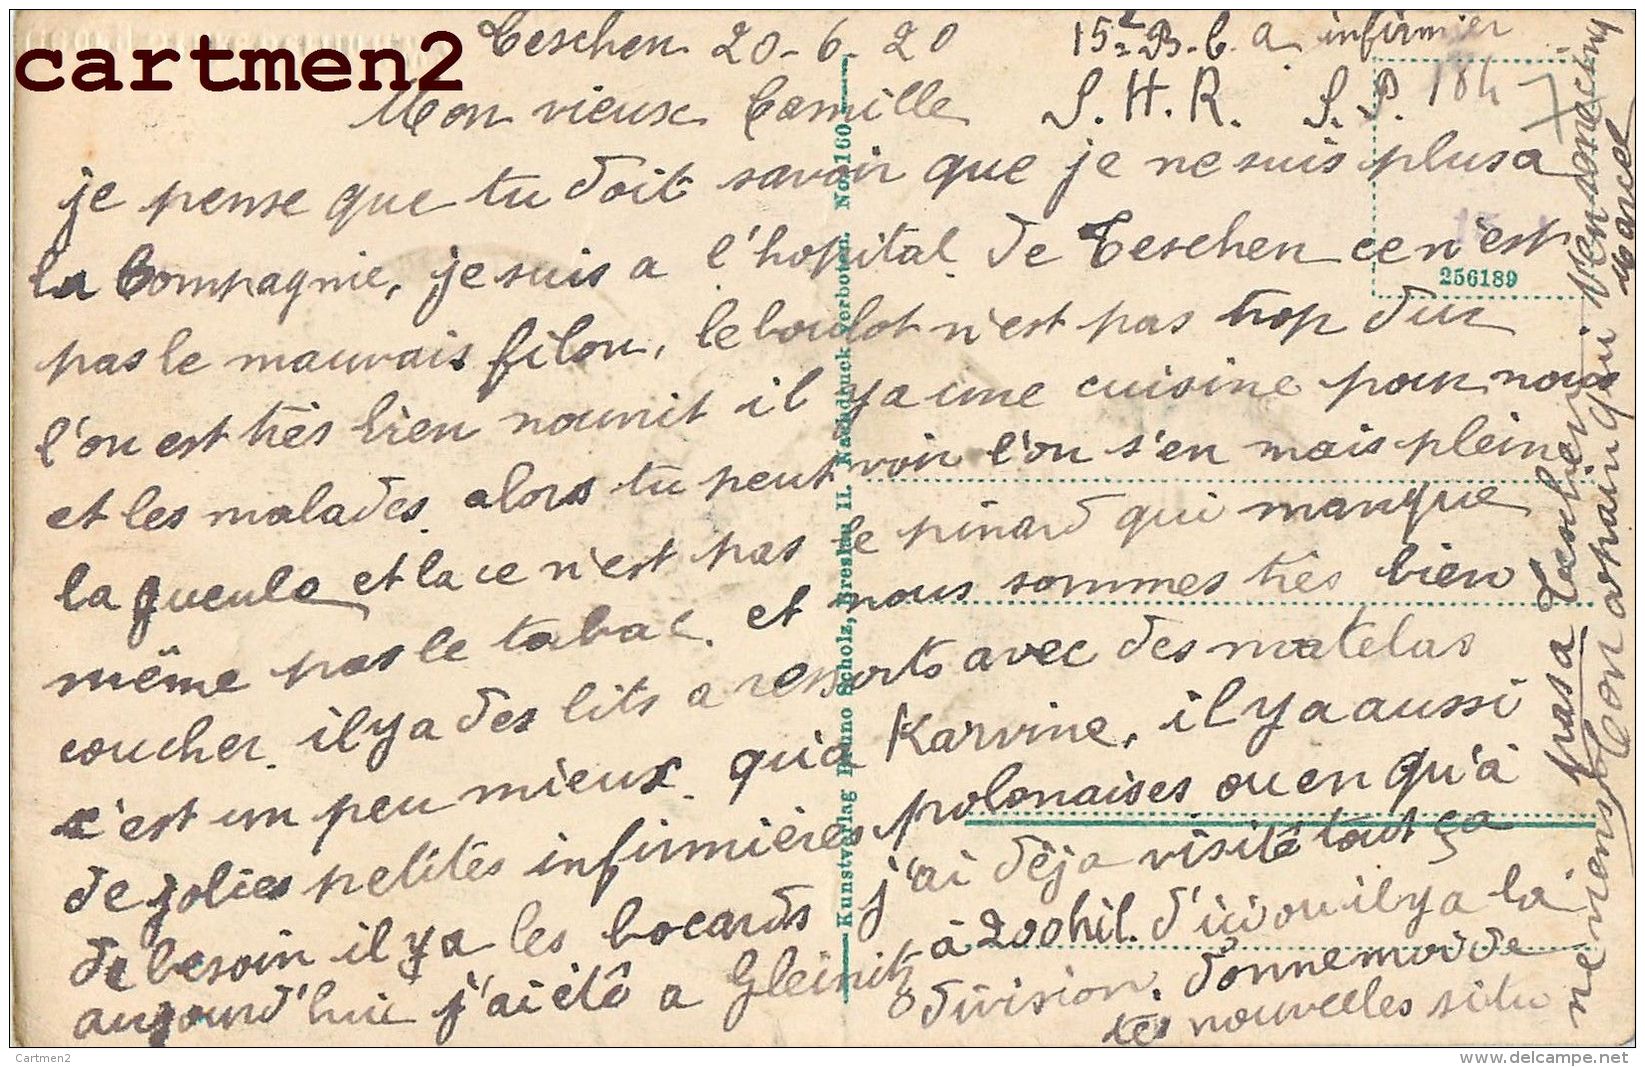 cartmen2
Teschen 20-6-20
15e B.C.A. infirmier
S.H.R. S.P. 184
Mon vieux Camille
je pense que tu doit savoir que je ne suis plus a
la Compagnie, je suis a l'hopital de Teschen ce n'est
pas le mauvais filon, le boulot n'est pas trop dur
l'on est très bien nourrit il y a une cuisine pour nous
et les malades. alors tu peut voir l'on s'en mais plein
la gueule et la ce n'est pas le pinard qui manque
même pas le tabac. et nous sommes très bien
coucher. il y a des lits a ressorts avec des matelas
c'est un peu mieux qu'a Karvine, il y a aussi
de jolies petites infirmières polonaises ou en qu'à
de besoin il y a les bocards j'ai déja visité tout ça
aujourd'hui j'ai été a Gleinitz à 200 kil. d'ici ou il y a la
division. donne moi de
tes nouvelles si tu
ne viens pas a Teschen
Ton copain qui
Marcel
256189
Kunstverlag Bruno Scholz, Breslau II. Nachdruck verboten. No. 160
Cartmen2
http://www.delcampe.net